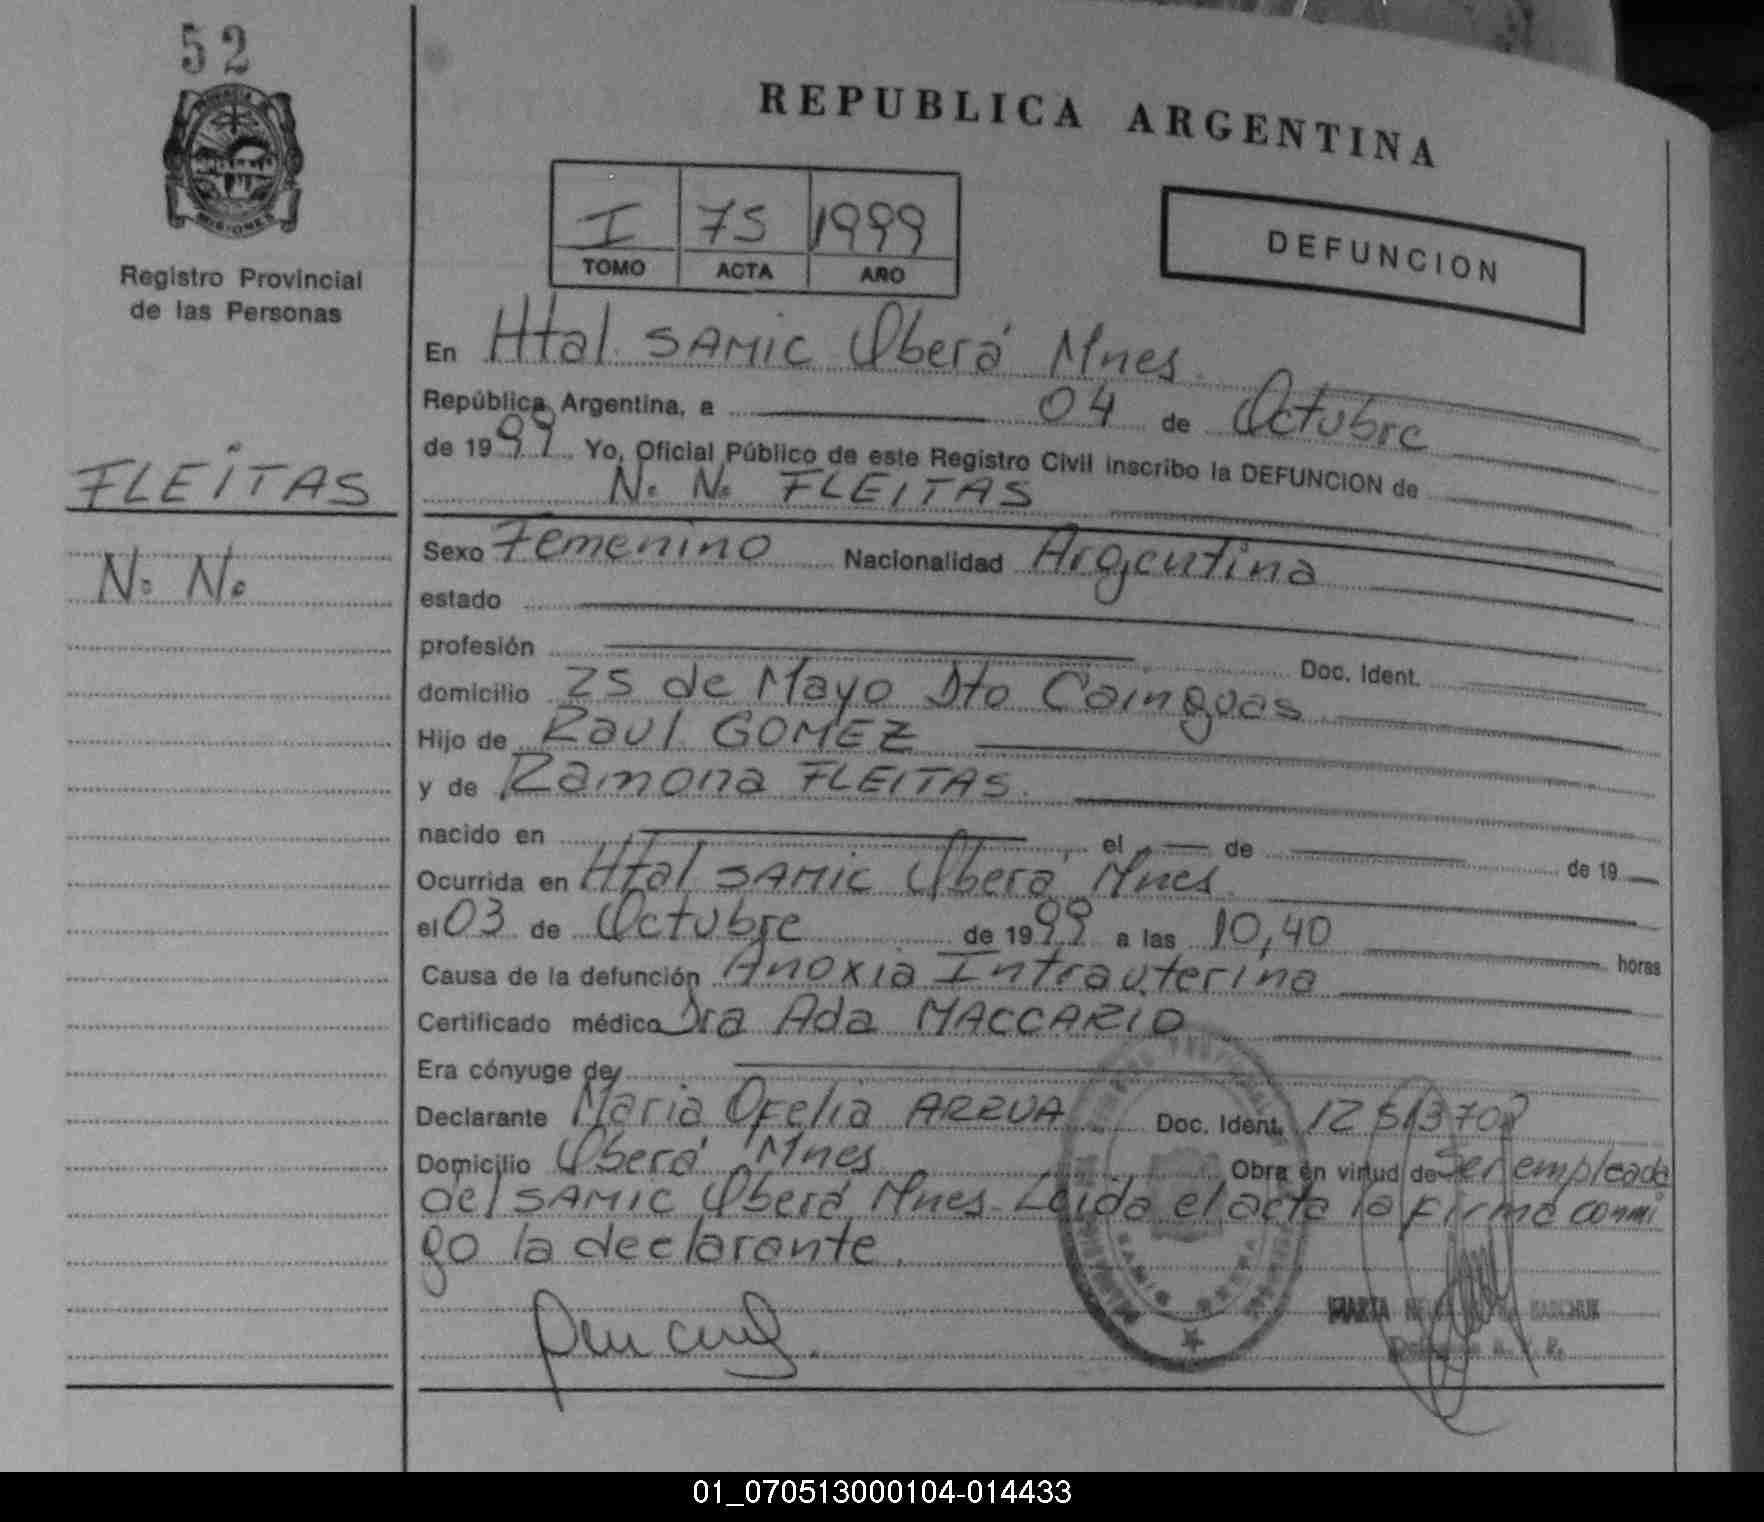 52
REPUBLICA ARGENTINA
I 75 1999
TOMO ACTA AÑO
DEFUNCION
Registro Provincial
de las Personas
En Htal. SAMIC Oberá Mnes.
República Argentina, a 04 de Octubre
de 1999 Yo, Oficial Público de este Registro Civil inscribo la DEFUNCION de
FLEITAS
N. N. FLEITAS
N. N.
Sexo Femenino Nacionalidad Argentina
estado
profesión Doc. Ident.
domicilio 25 de Mayo Dto Cainguas
Hijo de Raul GOMEZ
y de Ramona FLEITAS.
nacido en , el de de 19
Ocurrida en Htal SAMIC Oberá Mnes.
el 03 de Octubre de 1999 a las 10,40 horas
Causa de la defunción Anoxia Intrauterina
Certificado médico Dra Ada MACCARIO
Era cónyuge de
Declarante Maria Ofelia ARRUA Doc. Ident.
Domicilio Oberá Mnes Obra en virtud de Ser empleada
del SAMIC Oberá Mnes. Leida el acta la firma conmi
go la declarante.
MARTA
01_070513000104-014433